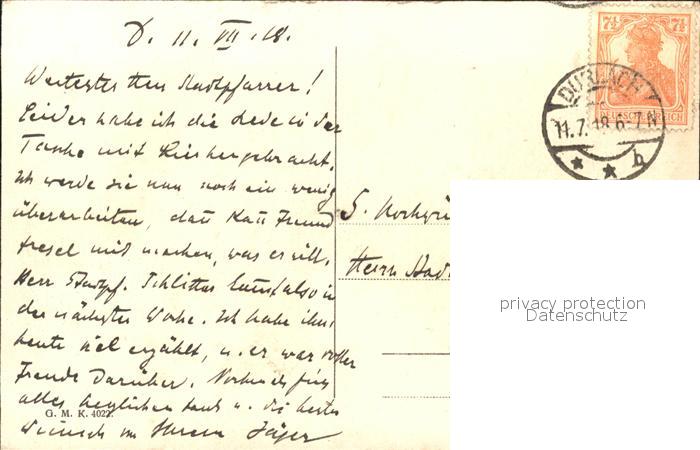 D. 11. VII. 18.
Wertester Herr Stadtpfarrer!
Leider habe ich die Rede in der
Tasche mit hierhergebracht.
Ich werde sie nun noch ein wenig
überarbeiten, dann kann Freund
mit machen, was er will.
Herr Stadtpf. Schlitter kommt also in
der nächsten Woche. Ich habe ihm
heute viel erzählt, u. er war voller
Freude darüber. Nochmals für
alles herzlichen Dank u. die besten
Wünsche von Ihrem Jäger
G. M. K. 4022.
S. Hochwü
Herrn Stad
7½ 7½
DEUTSCHES REICH
DURLACH
11.7.18 6-7N
* * b
privacy protection
Datenschutz